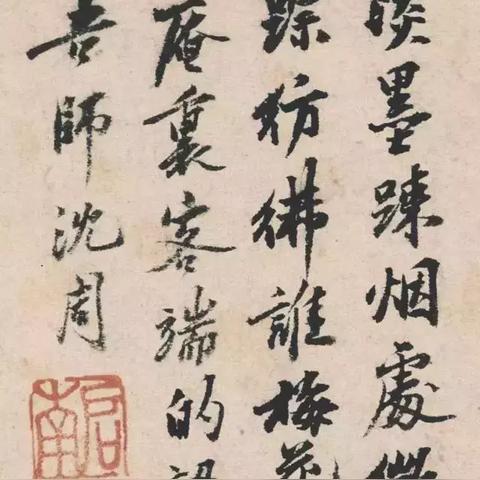 淡墨踈烟處微
踪彷彿誰梅花
庵裏客端的是
吾師沈周
啟南